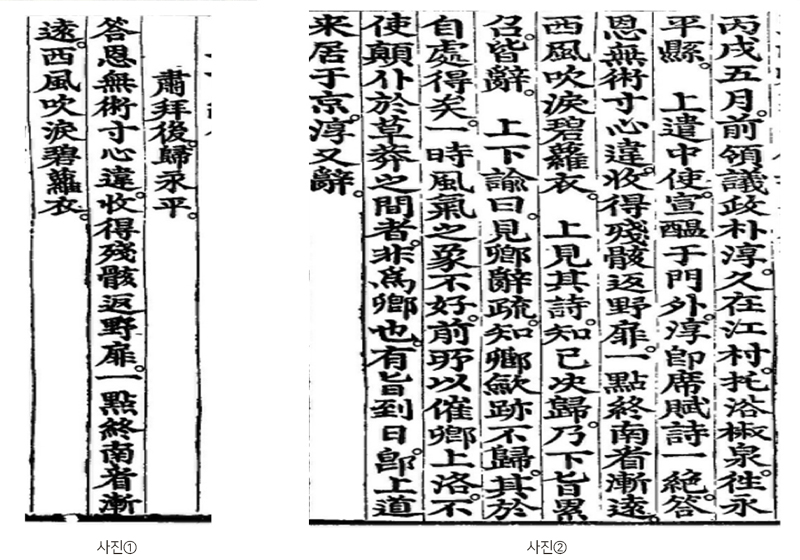 肅拜後。歸永平。
答恩無術寸心違。收得殘骸返野扉。一點終南看漸
遠。西風吹淚碧蘿衣。
사진①
丙戌五月。前領議政朴淳。久在江村。托浴椒泉。往永
平縣。 上遣中使。宣醞于門外。淳卽席賦詩一絶。答
恩無術寸心違。收得殘骸返野扉。一點終南看漸遠。
西風吹淚碧蘿衣。 上見其詩。知已决歸。乃下旨累
召。皆辭。 上下諭曰。見卿辭疏。知卿斂跡不歸。其於
自處得矣。一時風氣之象不好。前所以催卿上洛。不
使顚仆於草莽之間者。非爲卿也。有旨到日。卽上道
来居于京。淳又辭。
사진②